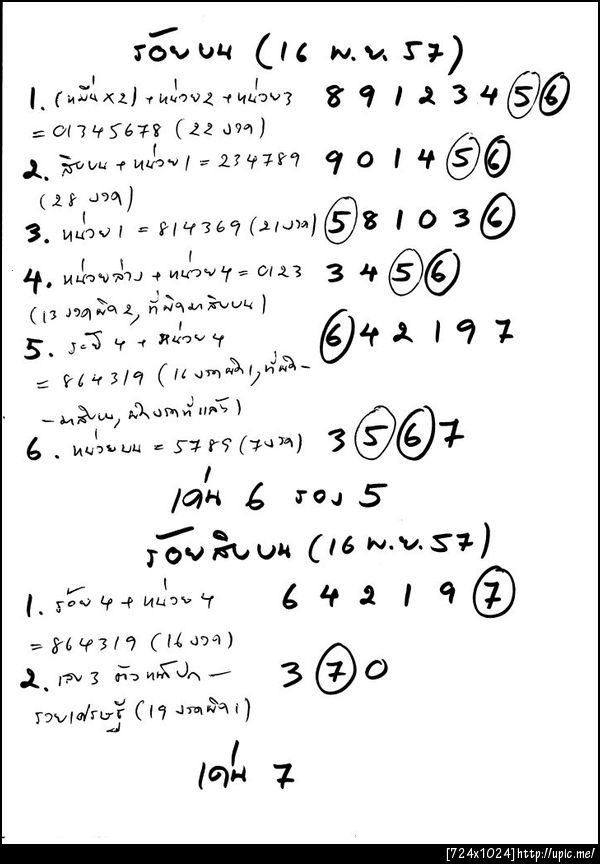 ร้อยบน (16 พ.ย. 57)
1. (หมื่น x2) + หน่วย2 + หน่วย3 8 9 1 2 3 4 5 6
= 01345678 (22 งวด)
2. สิบบน + หน่วย1 = 234789 9 0 1 4 5 6
(28 งวด)
3. หน่วย1 = 814369 (21 งวด) 5 8 1 0 3 6
4. หน่วยล่าง + หน่วย4 = 0123 3 4 5 6
(13 งวดผิด2, ที่ผิดมาสิบบน)
5. ระปี 4 + หน่วย 4 6 4 2 1 9 7
= 864319 (16 งวดผิด1, ที่ผิด-
-มาสิบบน, ผิดงวดที่แล้ว)
6. หน่วยบน = 5789 (7งวด) 3 5 6 7
เด่น 6 รอง 5
ร้อยสิบบน (16 พ.ย. 57)
1. ร้อย 4 + หน่วย 4 6 4 2 1 9 7
= 864319 (16 งวด)
2. เลข 3 ตัว ปก - 3 7 0
รวยเศรษฐี (19 งวดผิด1)
เด่น 7
[724x1024]http://upic.me/